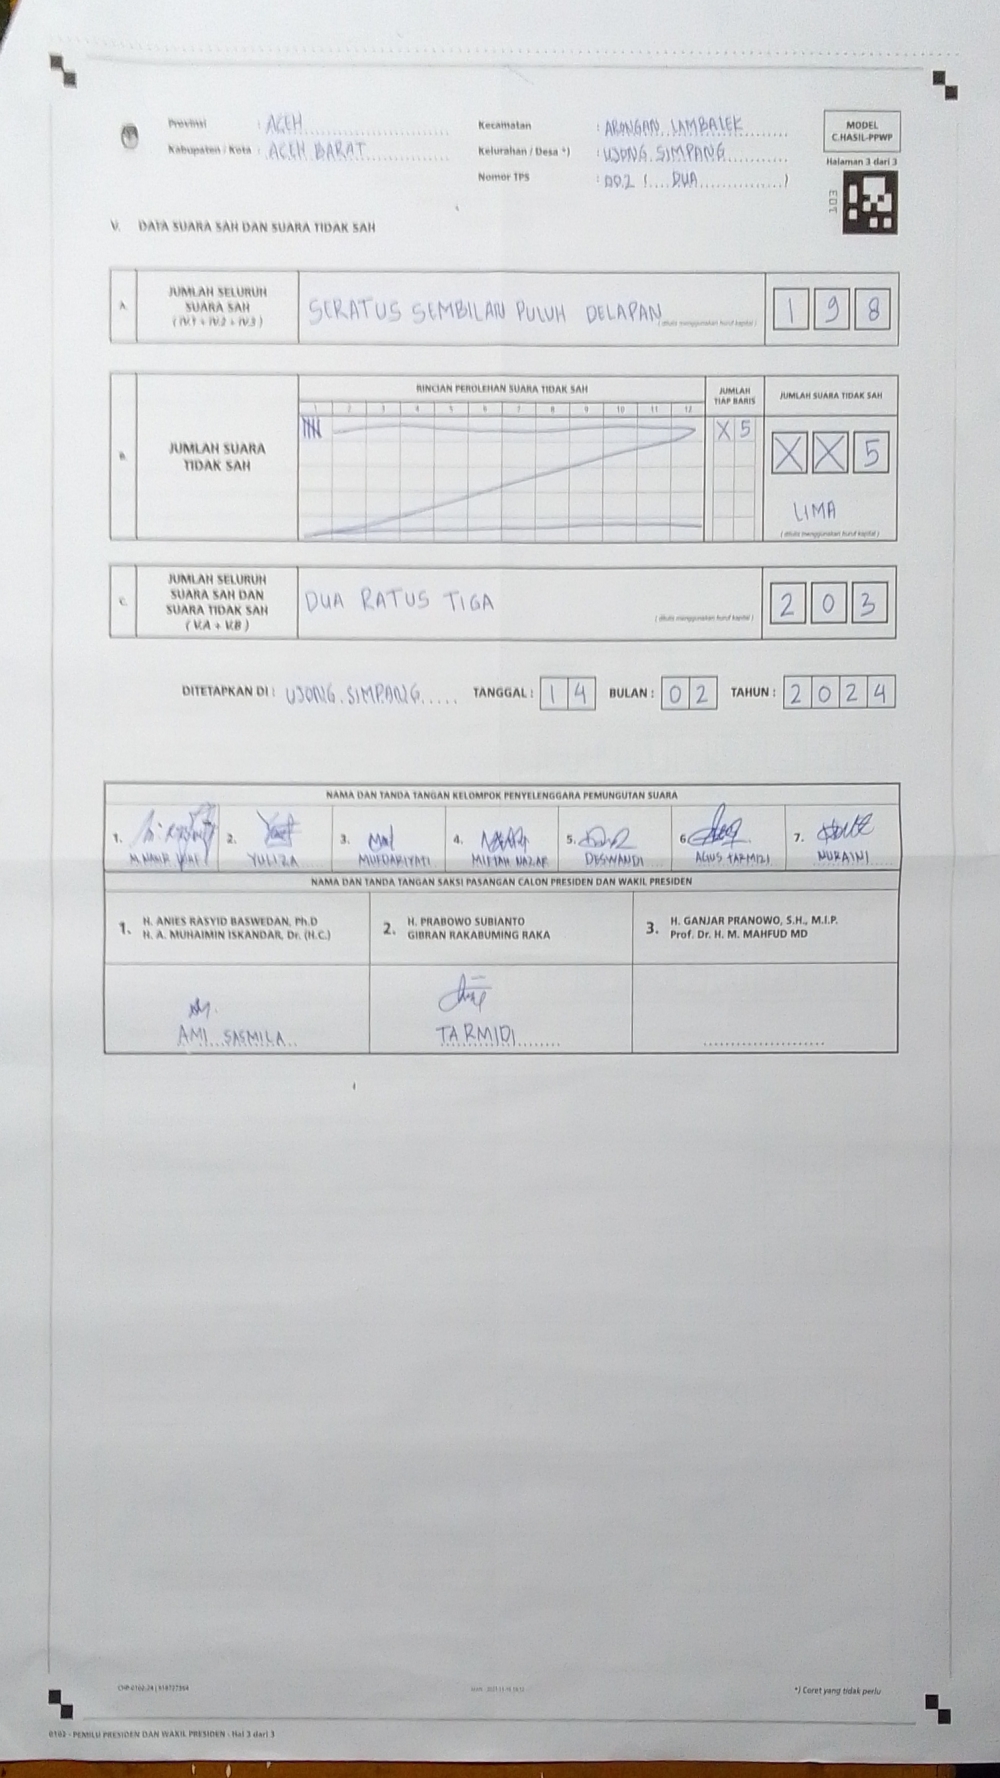 Provinsi : ACEH
Kabupaten / Kota : ACEH BARAT
Kecamatan : ARONGAN LAMBALEK
Kelurahan / Desa *) : UJONG SIMPANG
Nomor TPS : 002 ( DUA )
MODEL
C.HASIL-PPWP
Halaman 3 dari 3
103
V. DATA SUARA SAH DAN SUARA TIDAK SAH
A. JUMLAH SELURUH SUARA SAH ( IV.1 + IV.2 + IV.3 ) SERATUS SEMBILAN PULUH DELAPAN 1 9 8
( ditulis menggunakan huruf kapital )
RINCIAN PEROLEHAN SUARA TIDAK SAH JUMLAH TIAP BARIS JUMLAH SUARA TIDAK SAH
1 2 3 4 5 6 7 8 9 10 11 12
B. JUMLAH SUARA TIDAK SAH X 5 X X 5
LIMA
( ditulis menggunakan huruf kapital )
C. JUMLAH SELURUH SUARA SAH DAN SUARA TIDAK SAH ( V.A + V.B ) DUA RATUS TIGA 2 0 3
( ditulis menggunakan huruf kapital )
DITETAPKAN DI : UJONG SIMPANG TANGGAL : 1 4 BULAN : 0 2 TAHUN : 2 0 2 4
NAMA DAN TANDA TANGAN KELOMPOK PENYELENGGARA PEMUNGUTAN SUARA
1. 2. 3. 4. 5. 6. 7.
YULIZA MUFDARIYATI MIFTAH NAZAR DESWANDI AGUS TARMIZI NURAINI
NAMA DAN TANDA TANGAN SAKSI PASANGAN CALON PRESIDEN DAN WAKIL PRESIDEN
1. H. ANIES RASYID BASWEDAN, Ph.D
H. A. MUHAIMIN ISKANDAR, Dr. (H.C.)
2. H. PRABOWO SUBIANTO
GIBRAN RAKABUMING RAKA
3. H. GANJAR PRANOWO, S.H., M.I.P.
Prof. Dr. H. M. MAHFUD MD
AMI SASMILA TARMIDI
*) Coret yang tidak perlu
0102 - PEMILU PRESIDEN DAN WAKIL PRESIDEN - Hal 3 dari 3